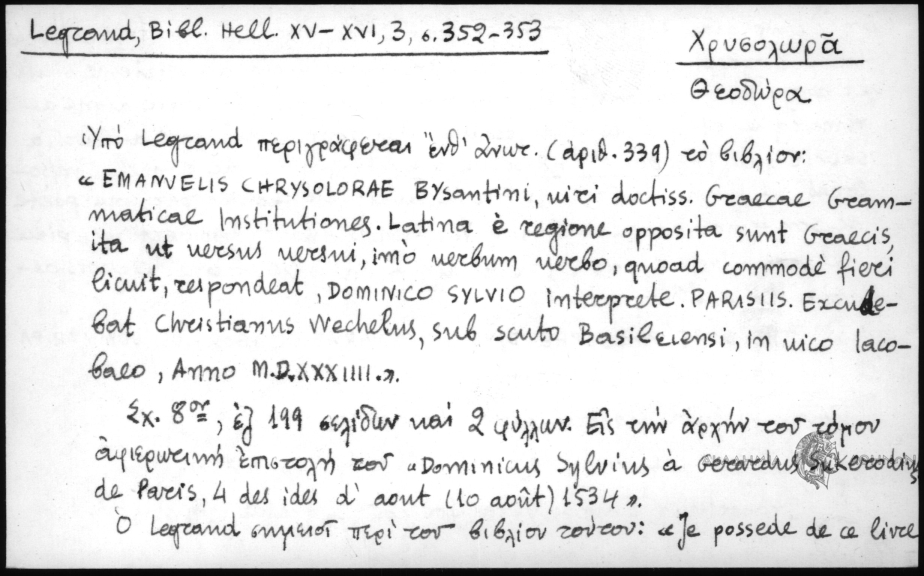 Legrand, Bibl. Hell. XV–XVI, 3, σ. 352–353
Χρυσολωρᾶ
Θεοδώρα
Ὑπό Legrand περιγράφεται ἔνθ' ἀνωτ. (ἀριθ. 339) τό βιβλίον:
« EMANVELIS CHRYSOLORAE BYsantini, uiri doctiss. Graecae Gram–
maticae Institutiones. Latina è regione opposita sunt Graecis,
ita ut uersus uersui, imò uerbum uerbo, quoad commodè fieri
licuit, respondeat, DOMINICO SYLVIO Interprete. PARISIIS. Excude–
bat Christianus Wechelus, sub scuto Basileiensi, in uico Iaco–
baeo, Anno M.D.XXXIIII.».
Σχ. 8ον, ἐξ 199 σελίδων καί 2 φύλλων. Εἰς τήν ἀρχήν τοῦ τόμου
ἀφιερωτική ἐπιστολή τοῦ «Dominicus Sylvius à Gerardus
de Paris, 4 des ides d' aout (10 août) 1534 ».
Ὁ Legrand σημειοῖ περί τοῦ βιβλίου τούτου: «Je possede de ce livre